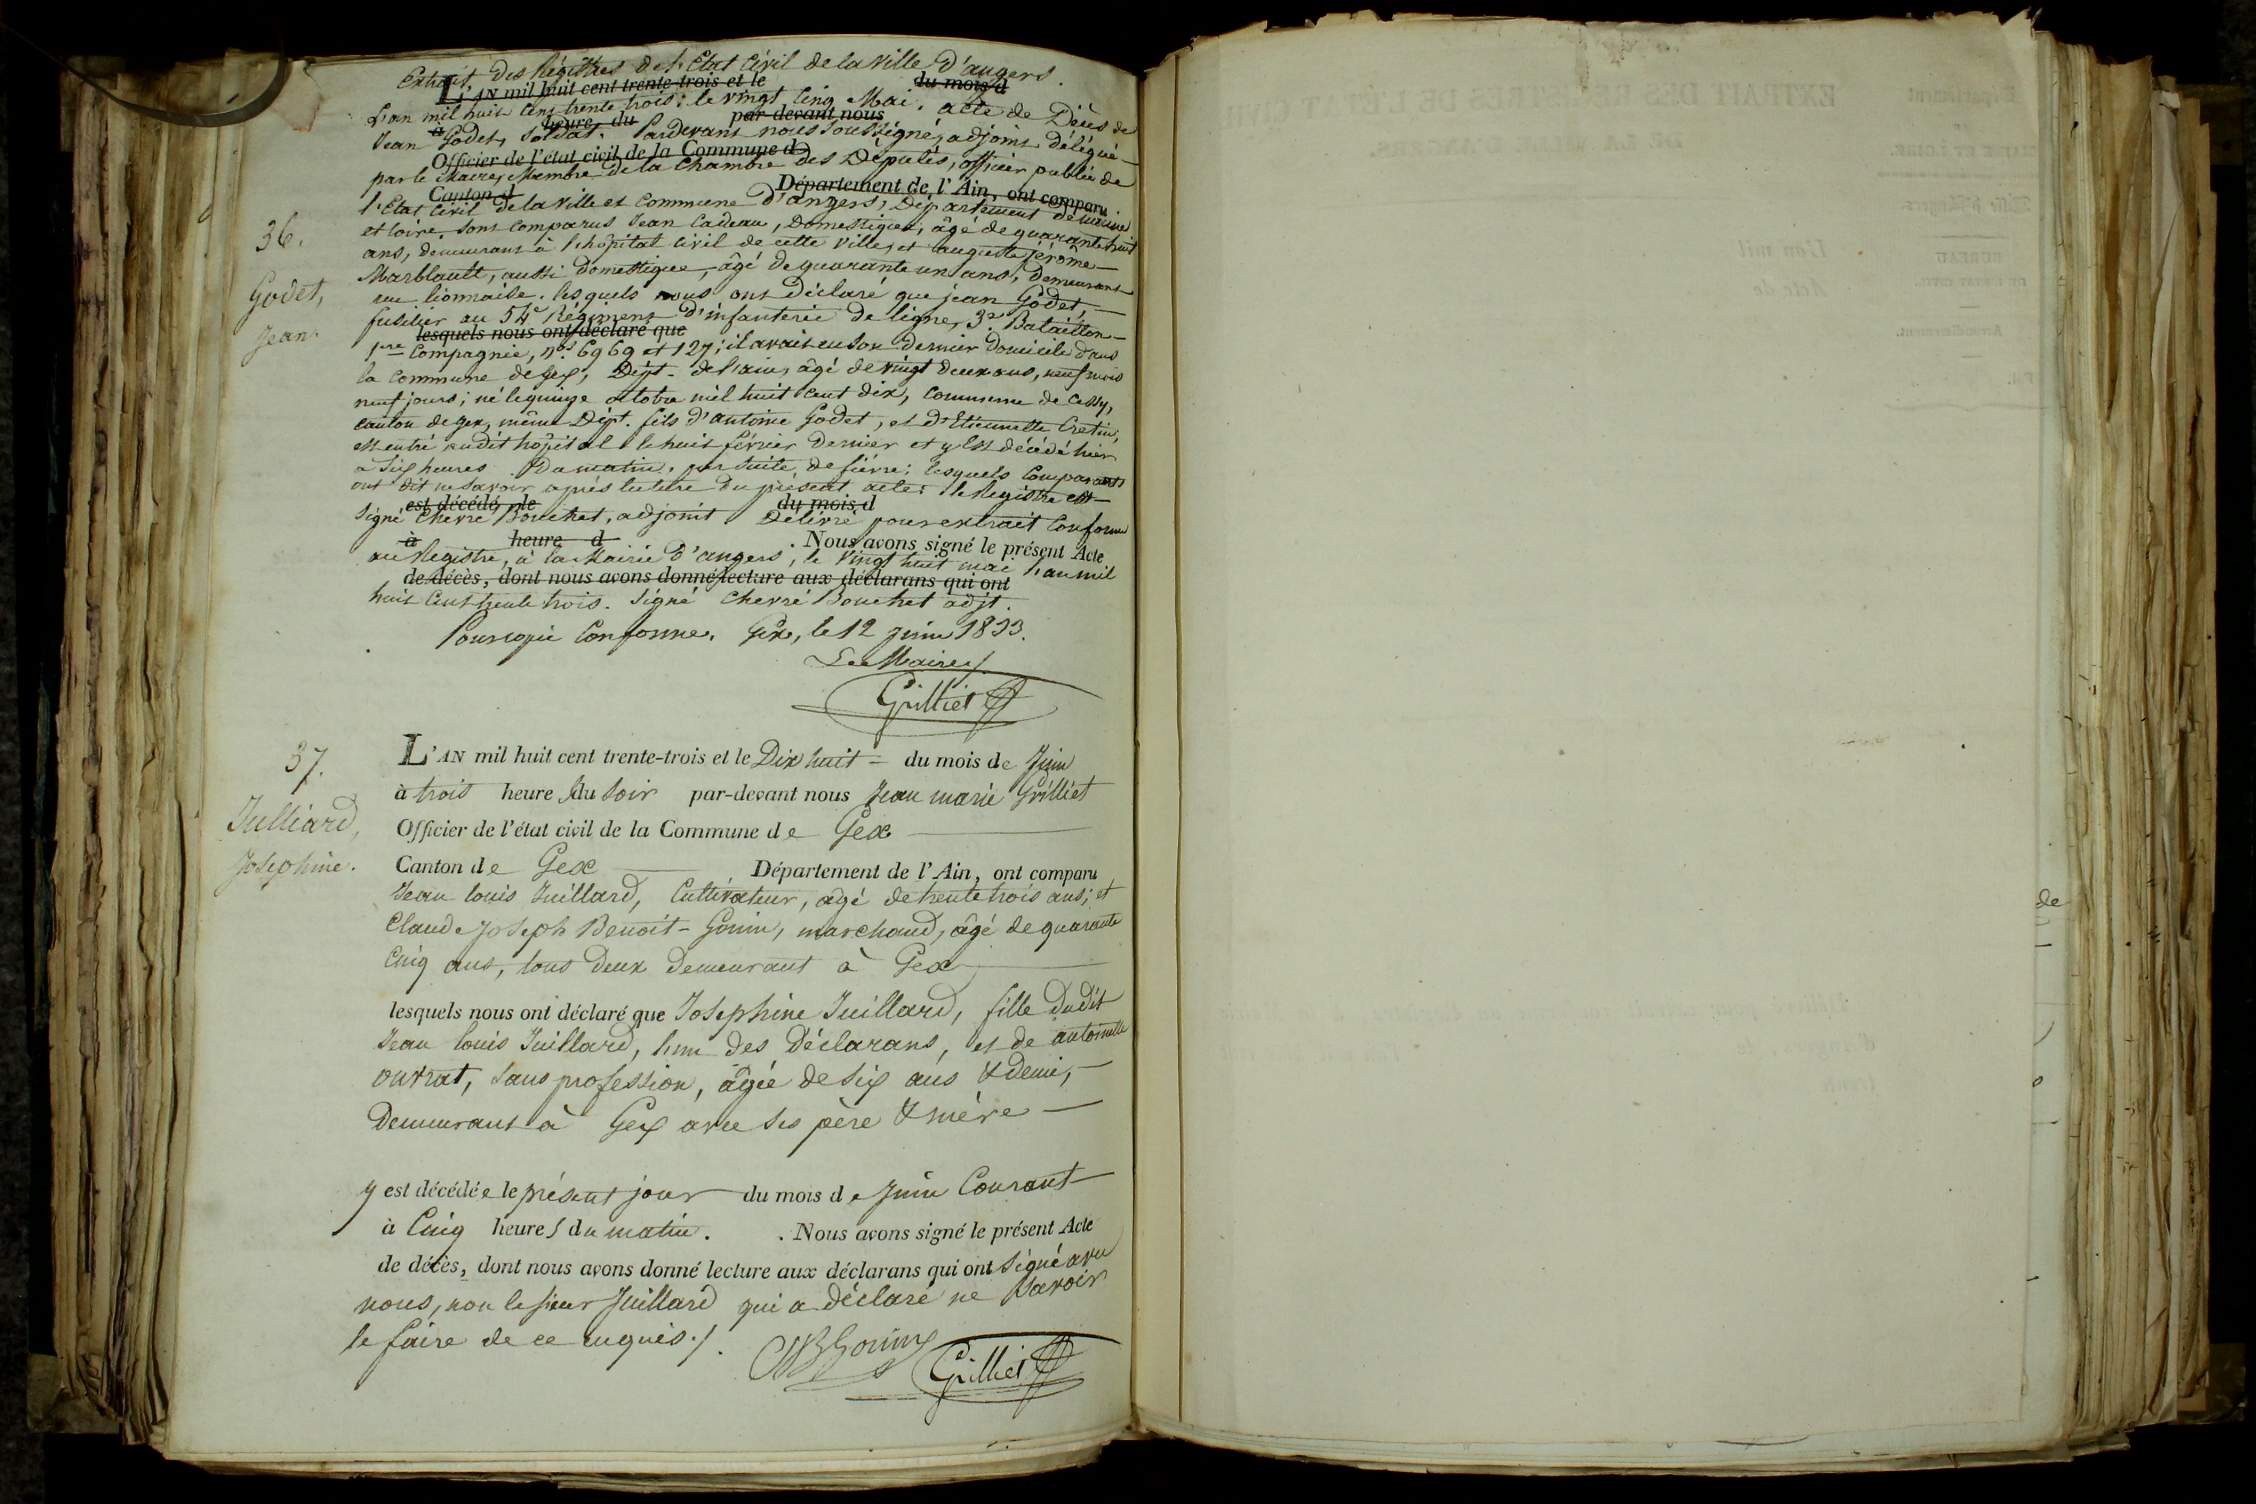 Extrait des Régistres de l'Etat Civil de la Ville d'angers.
L'AN mil huit cent trente-trois et le du mois d
L'an mil huit cent trente trois; le vingt cinq Mai, acte de Décès de
à heure du par-devant nous
Jean Godet, soldat. Pardevant nous soussigné, adjoint délégué
Officier de l'état civil de la Commune d
par le Maire, Membre de la Chambre des Députés, officier public de
Canton d Département de l'Ain, ont comparu
l'Etat Civil de la ville et Commune d'angers, Département de maine
et loire, sont comparus Jean Cadeau, Domestique, âgé de quarante huit
36.
ans, demeurant à l'hôpital Civil de cette Ville, et auguste jérôme
Marblault, aussi domestique, âgé de quarante un ans, demeurant
Godet,
rue lionnaise. lesquels nous ont déclaré que jean Godet,
fusilier au 54e Régiment d'infanterie de ligne, 3e Bataillon
Jean.
lesquels nous ont déclaré que
1re Compagnie, nos 6969 et 127; il avait eu son dernier domicile dans
la Commune de Gex, Dépt. de l'ain, âgé de vingt deux ans, neuf mois
neuf jours; né le quinze octobre mil huit cent dix, Commune de Cessy,
canton de gex, même Dépt. fils d'antoine Godet, et d'Etiennette Cretin,
est entré audit hôpital le huit février dernier et y est décédé hier
à six heures Du matin, par suite de fièvre; lesquels Comparants
ont dit ne savoir après lecture du présent acte; le Registre est
est décédé le du mois d
Signé Cherré Bouchet, adjoint Délivré pour extrait Conforme
à heure d . Nous avons signé le présent Acte
au Registre, à la Mairie d'angers, le vingt huit mai l'an mil
de décès, dont nous avons donné lecture aux déclarans qui ont
huit cent trente trois. Signé Cherré Bouchet adjt.
Pour copie Conforme. Gex, le 12 juin 1833.
Le Maire
Grilliet
37.
L'AN mil huit cent trente-trois et le Dix huit = du mois de Juin
à trois heures du Soir par-devant nous Jean marie Grilliet
Julliard,
Officier de l'état civil de la Commune de Gex
Josephine.
Canton de Gex Département de l'Ain, ont comparu
Jean louis Juillard, Cultivateur, âgé de trente trois ans; et
Claude Joseph Benoit-Gonin, marchand, âgé de quarante
Cinq ans, tous deux demeurant à Gex
lesquels nous ont déclaré que Josephine Juillard, fille dudit
Jean louis Juillard, l'un des Déclarans, et de antoinette
outrat, sans profession, âgée de six ans & demi,
Demeurant à Gex avec ses père & mère
y est décédée le présent jour du mois de Juin Courant
à Cinq heures du matin. . Nous avons signé le présent Acte
de décès, dont nous avons donné lecture aux déclarans qui ont signé avec
nous, non le sieur Juillard qui a déclaré ne savoir
le faire de ce enquis./.
Gonin
Grilliet
de